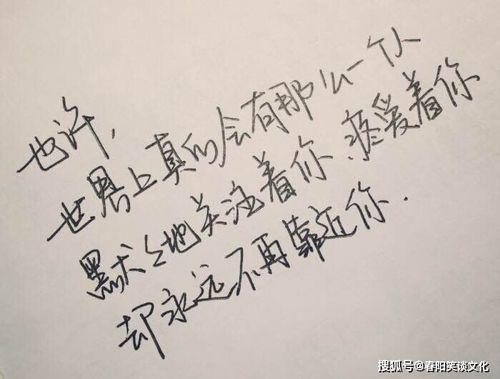 也许,
世界上真的会有那么一个人
默默地关注着你、疼爱着你
却永远不再靠近你.
搜狐号@春阳笑谈文化